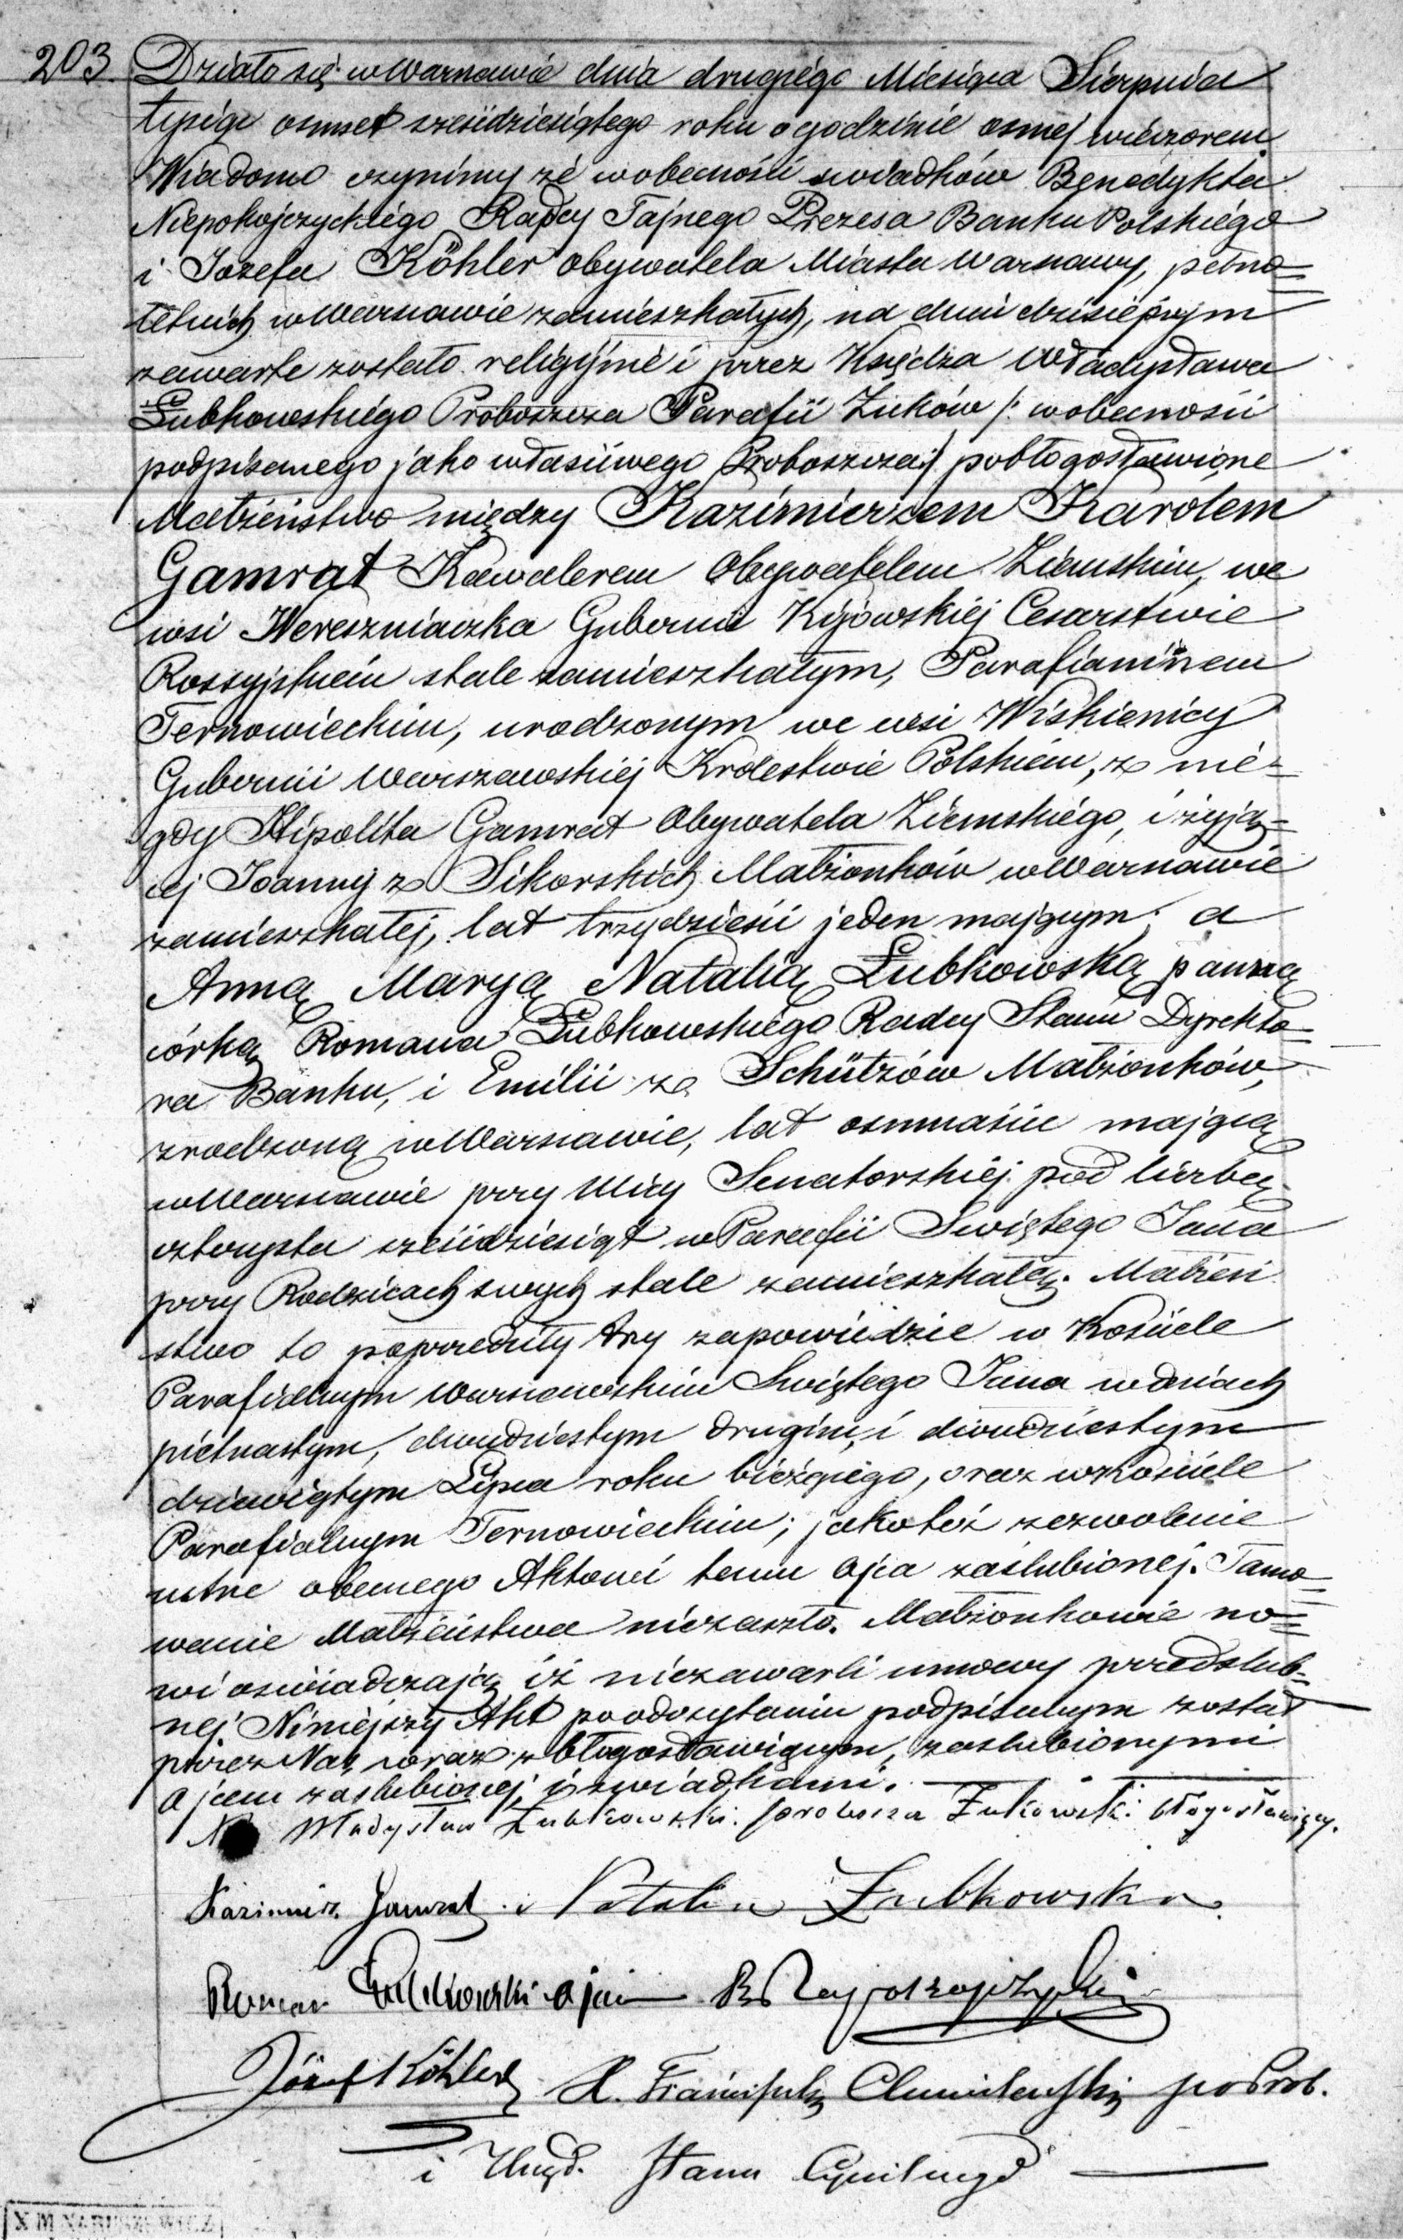 203. Działo się w Warszawie dnia drugiego Miesiąca Sierpnia
tysiąc osmset sześćdziesiątego roku o godzinie osmej wieczorem
Wiadomo czynimy że w obecności świadków Benedykta
Niepokojczyckiego Radcy Tajnego Prezesa Banku Polskiego
i Jozefa Köhler obywatela Miasta Warszawy, pełno=
letnich w Warszawie zamieszkałych, na dniu dzisiejszym
zawarte zostało religijnie i przez Księdza Władysława
Łubkowskiego Proboszcza Parafii Żuków /: w obecności
podpisanego jako właściwego Proboszcza :/ pobłogosławione
Małżeństwo między Kazimierzem Karolem
Gamrat Kawalerem Obywatelem Ziemskim, we
wsi Wereszniaczka Gubernii Kijowskiéj Cesarstwie
Rossyjskiém stale zamieszkałym, Parafianinem
Ternowieckim, urodzonym we wsi Wiskienicy
Gubernii Warszawskiéj Krolestwie Polskiém, z nie=
gdy Hipolita Gamrat Obywatela Ziemskiégo, i żyją=
cej Joanny z Sikorskich Małżonków w Warszawie
zamieszkałej, lat trzydzieści jeden mającym; a
Anną Maryą Natalią Łubkowską panną
córką Romana Łubkowskiégo Radcy Stanu Dyrekto=
ra Banku, i Emilii ze Schützów Małżonków,
zrodzoną w Warszawie, lat osmnaście mającą
w Warszawie przy Ulicy Senatorskiéj pod liczbą
czterysta sześćdziesiąt w Parafii Swiętego Jana
przy Rodzicach swych stale zamieszkałą. Małżeń
stwo to poprzedziły trzy zapowiedzie w Kościele
Parafialnym Warszawskim Swiętego Jana w dniach
piętnastym, dwudziestym drugim, i dwudziestym
dziewiątym Lipca roku bieżącego, oraz w Kościele
Parafialnym Ternowieckim; jakotéż zezwolenie
ustne obecnego Aktowi temu Ojca zaślubionej. Tamo=
wanie Małżeństwa niezaszło. Małżonkowie no=
wi oświadczają iż niezawarli umowy przedślub=
nej. Niniejszy Akt po odczytaniu podpisanym został
przez Nas, wraz z błogosławiącym, zaślubionymi
Ojcem zaślubionej, i świadkami.
Władysław Łubkowski. proboszcz Żukowski. błogosławiący.
Kazimierz Gamrat. i Natalia Łubkowska.
Roman Łubkowski ojciec B Niepokojczycki
Józef Köhler X. Franciszek Chmielewski po Prob.
i Urzęd. Stanu Cywilnego